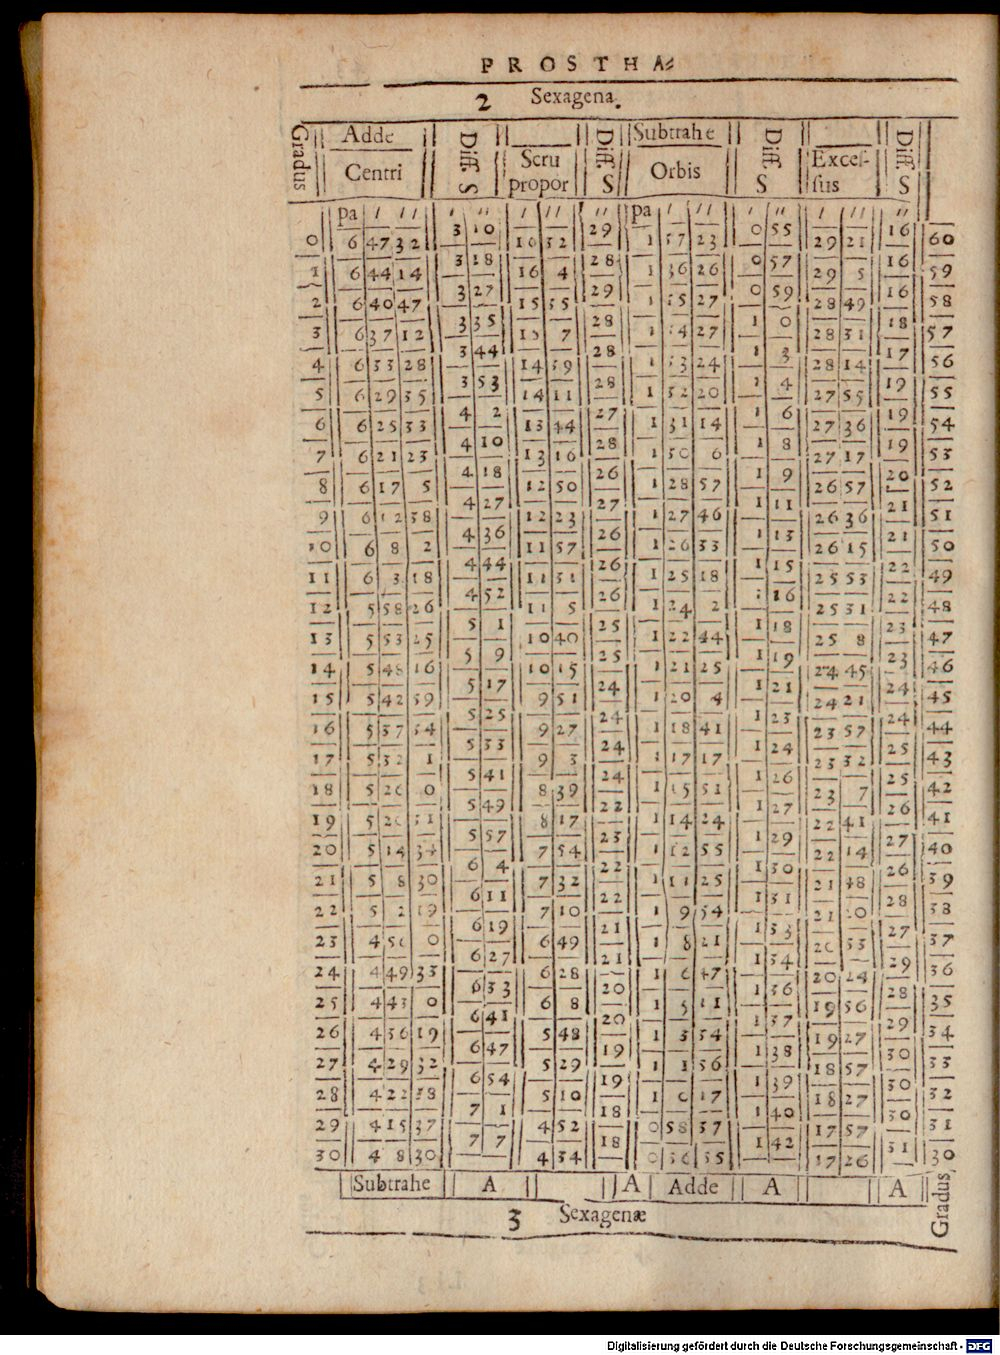 PROSTHA⸗
2 Sexagena.
Gradus Adde Centri Diff. S Scru propor Diff. S Subtrahe Orbis Diff. S Excessus Diff. S
pa ′ ″ ′ ″ ′ ″ ″ pa ′ ″ ′ ″ ′ ″ ″
0 6 47 32 3 10 16 32 29 1 37 23 0 55 29 21 16 60
1 6 44 14 3 18 16 4 28 1 36 26 0 57 29 5 16 59
2 6 40 47 3 27 15 35 29 1 35 27 0 59 28 49 16 58
3 6 37 12 3 35 15 7 28 1 34 27 1 0 28 31 18 57
4 6 33 28 3 44 14 39 28 1 33 24 1 3 28 14 17 56
5 6 29 35 3 53 14 11 28 1 32 20 1 4 27 55 19 55
6 6 25 33 4 2 13 44 27 1 31 14 1 6 27 36 19 54
7 6 21 23 4 10 13 16 28 1 30 6 1 8 27 17 19 53
8 6 17 5 4 18 12 50 26 1 28 57 1 9 26 57 20 52
9 6 12 38 4 27 12 23 27 1 27 46 1 11 26 36 21 51
10 6 8 2 4 36 11 57 26 1 26 33 1 13 26 15 21 50
11 6 3 18 4 44 11 31 26 1 25 18 1 15 25 53 22 49
12 5 58 26 4 52 11 5 26 1 24 2 1 16 25 31 22 48
13 5 53 25 5 1 10 40 25 1 22 44 1 18 25 8 23 47
14 5 48 16 5 9 10 15 25 1 21 25 1 19 24 45 23 46
15 5 42 59 5 17 9 51 24 1 20 4 1 21 24 21 24 45
16 5 37 34 5 25 9 27 24 1 18 41 1 23 23 57 24 44
17 5 32 1 5 33 9 3 24 1 17 17 1 24 23 32 25 43
18 5 26 0 5 41 8 39 24 1 15 51 1 26 23 7 25 42
19 5 20 31 5 49 8 17 22 1 14 24 1 27 22 41 26 41
20 5 14 34 5 57 7 54 23 1 12 55 1 29 22 14 27 40
21 5 8 30 6 4 7 32 22 1 11 25 1 30 21 48 26 39
22 5 2 19 6 11 7 10 22 1 9 54 1 31 21 20 28 38
23 4 56 0 6 19 6 49 21 1 8 21 1 33 20 53 27 37
24 4 49 33 6 27 6 28 21 1 6 47 1 34 20 24 29 36
25 4 43 0 6 33 6 8 20 1 5 11 1 36 19 56 28 35
26 4 36 19 6 41 5 48 20 1 3 34 1 37 19 27 29 34
27 4 29 32 6 47 5 29 19 1 1 56 1 38 18 57 30 33
28 4 22 38 6 54 5 10 19 1 0 17 1 39 18 27 30 32
29 4 15 37 7 1 4 52 18 0 58 37 1 40 17 57 30 31
30 4 8 30 7 7 4 34 18 0 56 55 1 42 17 26 31 30
Subtrahe A A Adde A A Gradus
3 Sexagenæ
Digitalisierung gefördert durch die Deutsche Forschungsgemeinschaft - DFG